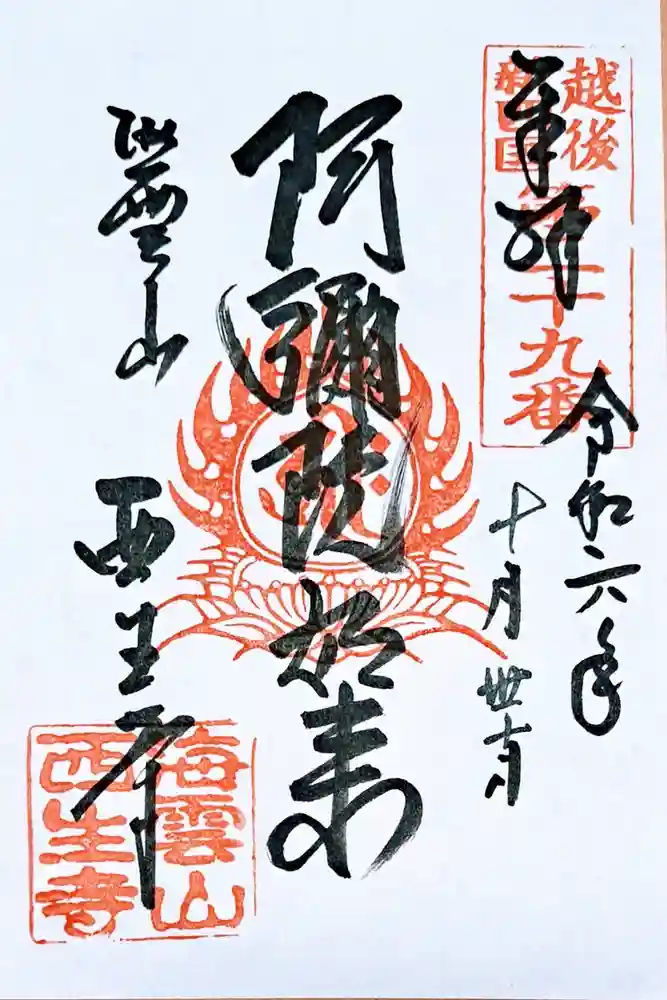 奉拝
越後
新四国
第二十九番
令和六年
十月卅一日
阿彌陀如来
海雲山
西生寺
海雲山
西生寺